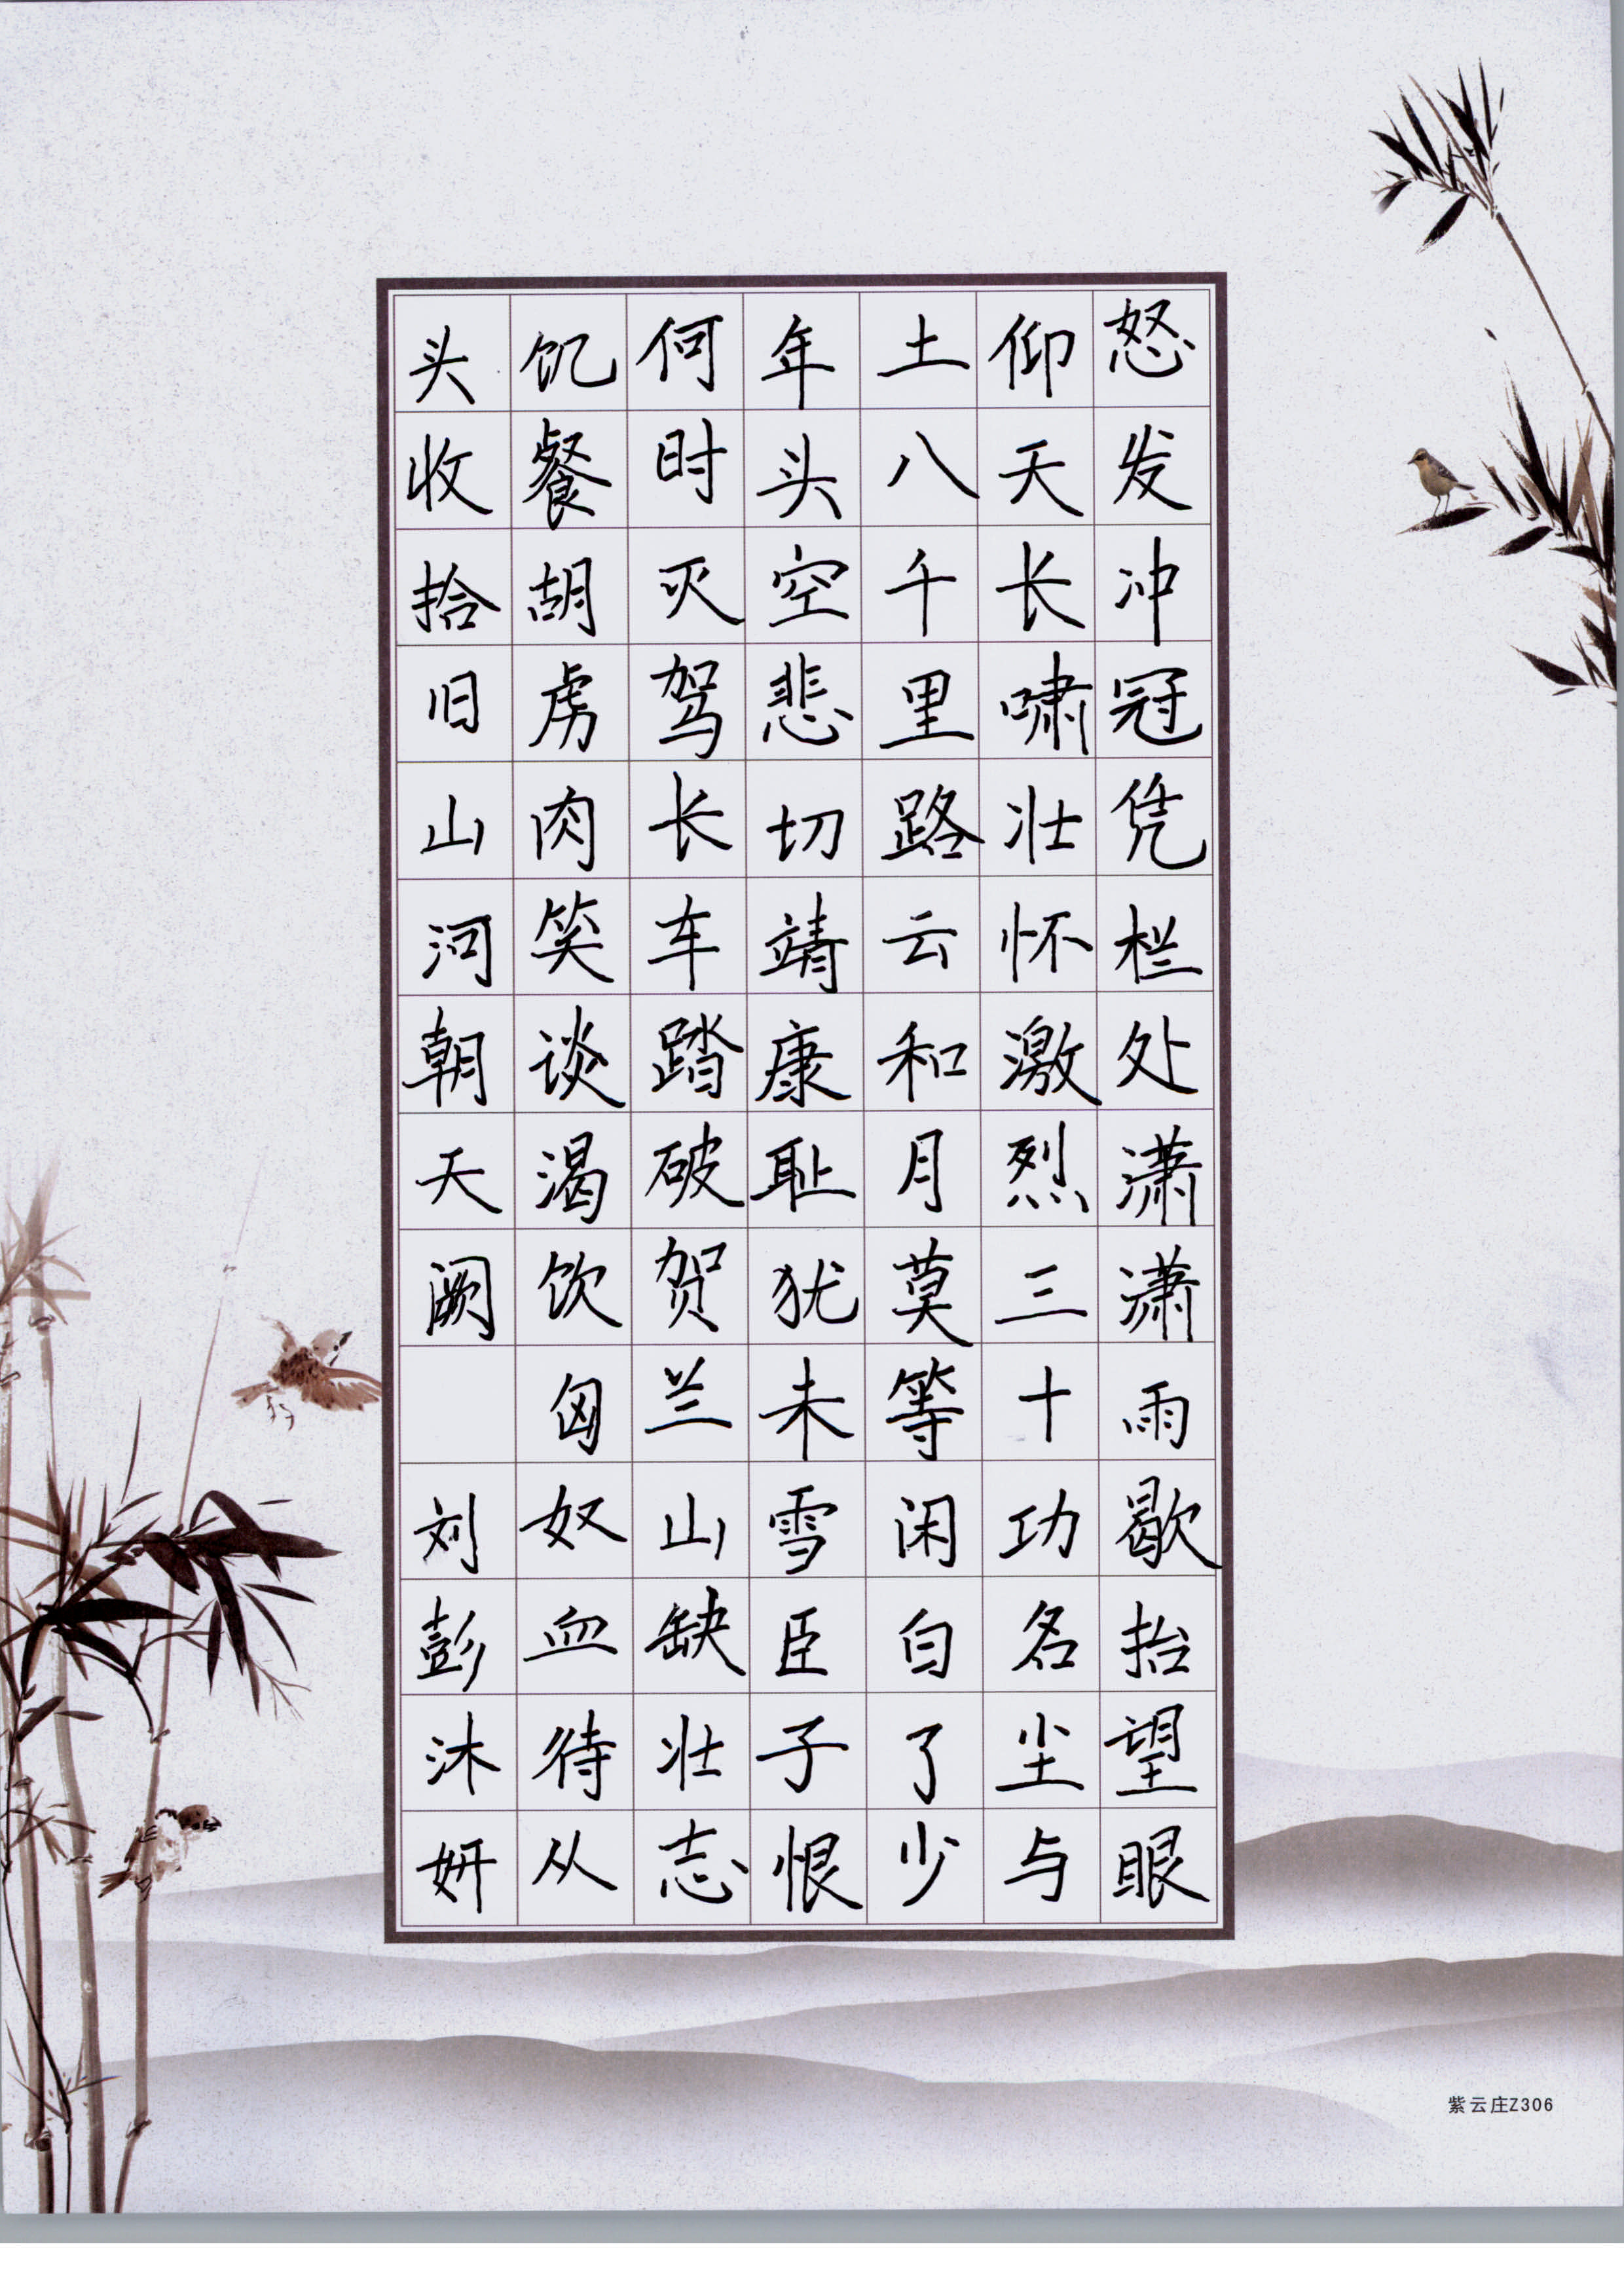 怒发冲冠凭栏处潇潇雨歇抬望眼
仰天长啸壮怀激烈三十功名尘与
土八千里路云和月莫等闲白了少
年头空悲切靖康耻犹未雪臣子恨
何时灭驾长车踏破贺兰山缺壮志
饥餐胡虏肉笑谈渴饮匈奴血待从
头收拾旧山河朝天阙 刘彭沐妍
紫云庄Z306